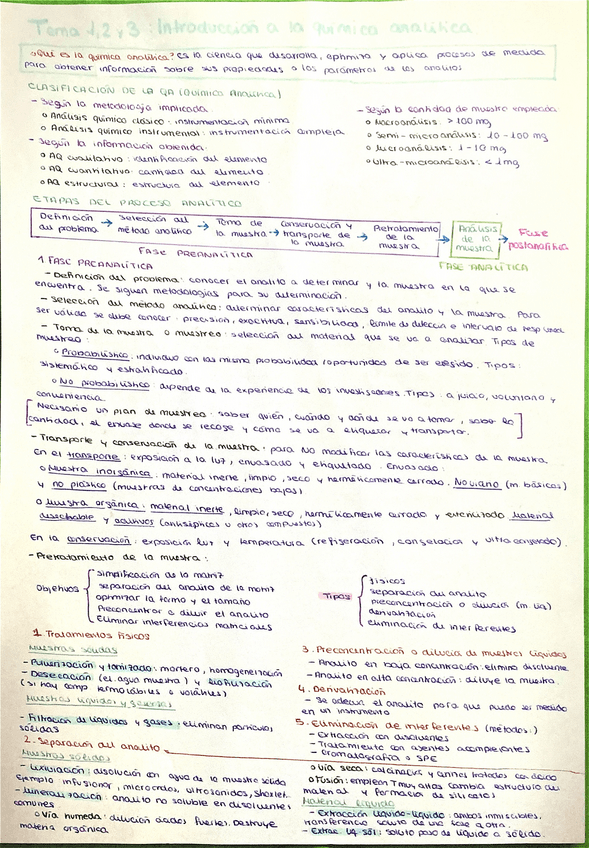 Tema 1,2 y 3: Introducción a la química analítica
¿Qué es la química analítica? es la ciencia que desarrolla, optimiza y aplica procesos de medida
para obtener información sobre sus propiedades o los parámetros de los analitos
CLASIFICACIÓN DE LA QA (Química Analítica)
- Según la metodología implicada
o Análisis químico clásico: instrumentación mínima
o Análisis químico instrumental: instrumentación compleja
- Según la información obtenida
o AQ cualitativo: identificación del elemento
o AQ cuantitativo: cantidad del elemento
o AQ estructural: estructura del elemento
- Según la cantidad de muestra empleada
o Macroanálisis: >100 mg
o Semi-microanálisis: 10-100 mg
o Microanálisis: 1-10 mg
o Ultra-microanálisis: <1mg
ETAPAS DEL PROCESO ANALÍTICO
Definición del problema → Selección del método analítico → Toma de la muestra → Conservación y transporte de la muestra → Pretratamiento de la muestra → Análisis de la muestra → Fase postanalítica
FASE PREANALÍTICA
FASE ANALÍTICA
1 FASE PREANALÍTICA
- Definición del problema: conocer el analito a determinar y la muestra en la que se
encuentra. Se siguen metodologías para su determinación.
- Selección del método analítico: determinar características del analito y la muestra. Para
ser válido se debe conocer: precisión, exactitud, sensibilidad, límite de detección e intervalo de resp lineal
- Toma de la muestra o muestreo: selección del material que se va a analizar Tipos de
muestreo:
o Probabilístico: individuo con las misma probabilidad/oportunidades de ser elegido. Tipos:
sistemático y estratificado.
o No probabilístico: depende de la experiencia de los investigadores. Tipos: a juicio, voluntario y
conveniencia.
Necesario un plan de muestreo: saber quién, cuándo y dónde se va a tomar, saber la
cantidad, el envase donde se recoge y cómo se va a etiquetar y transportar.
- Transporte y conservación de la muestra: para NO modificar las características de la muestra.
En el transporte: exposición a la luz, envasado y etiquetado. Envasado:
o Muestra inorgánica: material inerte, limpio, seco y herméticamente cerrado. No vidrio (m básicas)
y no plástico (muestras de concentraciones bajas)
o Muestra orgánica: material inerte, limpio, seco, herméticamente cerrado y esterilizado. Material
desechable y aditivos (antisépticos u otros compuestos)
En la conservación: exposición luz y temperatura (refrigeración, congelación y ultracongelado).
- Pretratamiento de la muestra:
Objetivos
simplificación de la matriz
separación del analito de la matriz
optimizar la forma y el tamaño
Preconcentrar o diluir el analito
Eliminar interferencias matriciales
Tipos
físicos
separación del analito
preconcentración o dilución (m liq)
derivatización
eliminación de interferentes
1. Tratamientos físicos
Muestras sólidas
- Pulverización y tamizado: mortero, homogeneización
- Desecación (el. agua muestra) y liofilización
(si hay comp termolábiles o volátiles)
Muestras líquidas y gaseosas
- Filtración de líquidos y gases: eliminan partículas
sólidas
2. Separación del analito
Muestras sólidas
- Lixiviación: disolución con agua de la muestra sólida
Ejemplo: infusionar, microondas, ultrasonidos, Soxhlet.
- Mineralización: analito no soluble en disolventes
comunes
o Vía húmeda: dilución ácidos fuertes. Destruye
materia orgánica.
3. Preconcentración o dilución de muestras líquidas
- Analito en baja concentración: elimino disolvente.
- Analito en alta concentración: diluye la muestra.
4. Derivatización
- Se adecua el analito para que pueda ser medido
en un instrumento
5. Eliminación de interferentes (métodos:)
- Extracción con disolventes
- Tratamiento con agentes acomplejantes
- Cromatografía o SPE
o Vía seca: calcinadas y cenizas tratadas con ácido
o Fusión: emplean T muy altas cambia estructura del
material y formación de silicatos
Material líquido
- Extracción líquido-líquido: ambos inmiscibles,
transferencia soluto de una fase a otra.
- Extrac. líq sól: soluto pasa de líquido a sólido.